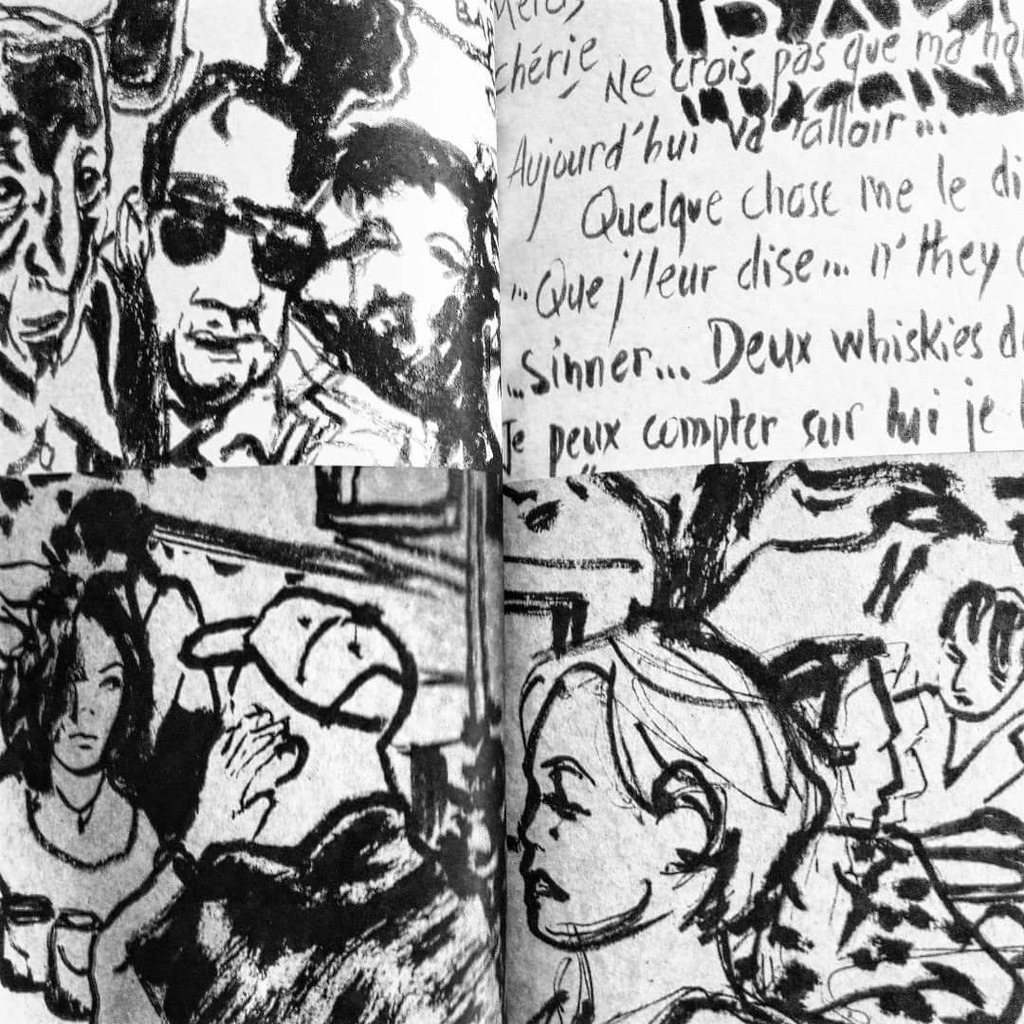 chérie
Ne crois pas que ma
Aujourd'hui va falloir...
Quelque chose me le di
...Que j'leur dise... n'they
...sinner... Deux whiskies d
Je peux compter sur lui je